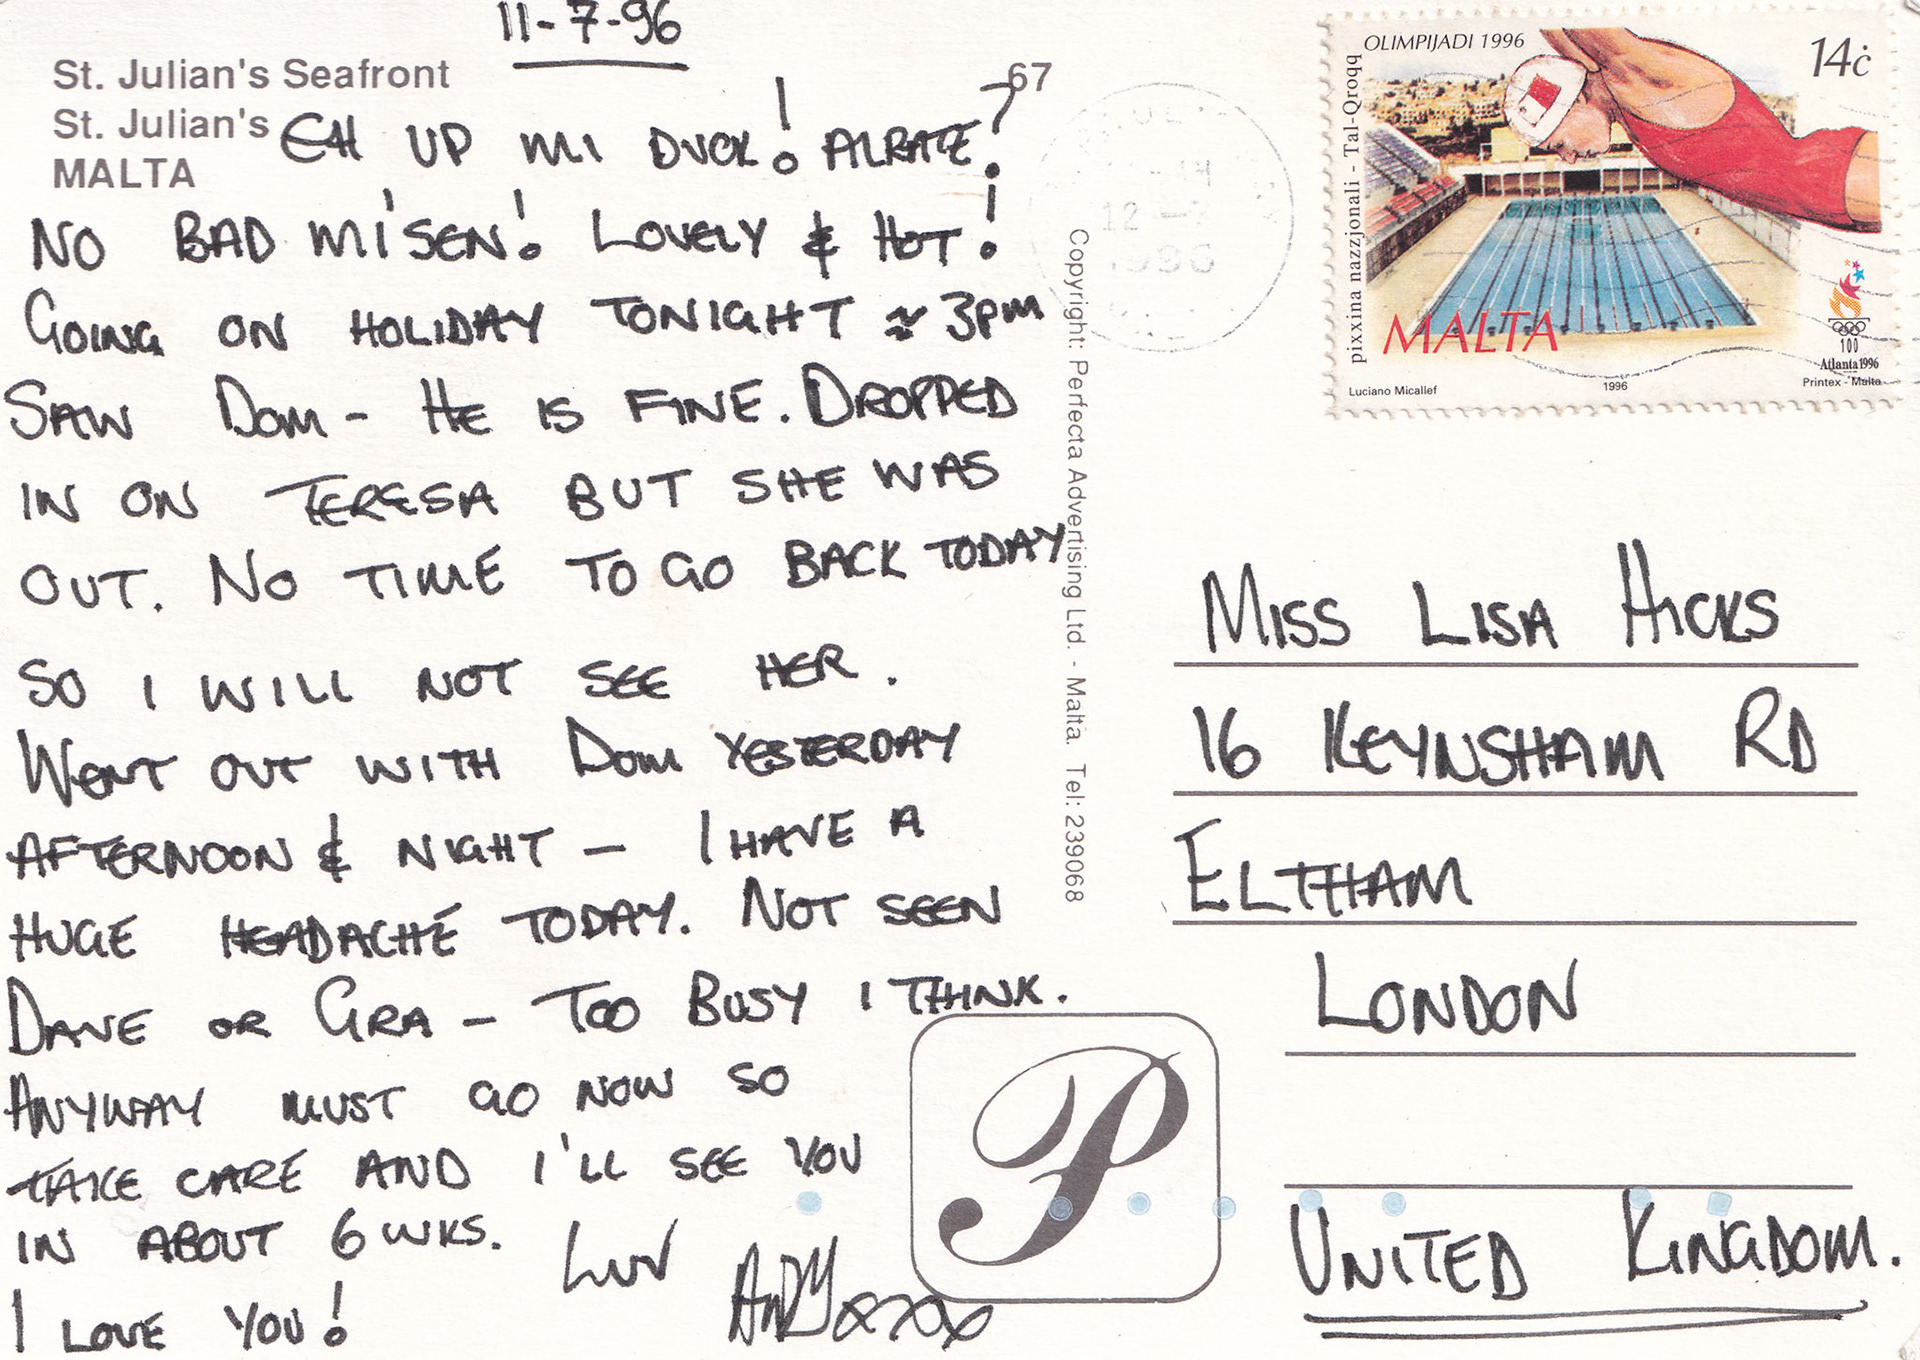 11-7-96
St. Julian's Seafront
St. Julian's
MALTA
67
EH UP MI DUCK! ALRATE?
NO BAD MI'SEN! LOVELY & HOT!
GOING ON HOLIDAY TONIGHT ≈ 3PM
SAW DOM - HE IS FINE. DROPPED
IN ON TERESA BUT SHE WAS
OUT. NO TIME TO GO BACK TODAY
SO I WILL NOT SEE HER.
WENT OUT WITH DOM YESTERDAY
AFTERNOON & NIGHT - I HAVE A
HUGE HEADACHE TODAY. NOT SEEN
DAVE OR GRA - TOO BUSY I THINK.
ANYWAY MUST GO NOW SO
TAKE CARE AND I'LL SEE YOU
IN ABOUT 6 WKS. LUV
I LOVE YOU! ANDY xxxx
Copyright: Perfecta Advertising Ltd. - Malta. Tel: 239068
P
12 -7
1996
OLIMPIJADI 1996
14ċ
pixxina nazzjonali - Tal-Qroqq
MALTA
100
Atlanta 1996
Luciano Micallef
1996
Printex - Malta
MISS LISA HICKS
16 KEYNSHAM RD
ELTHAM
LONDON
UNITED KINGDOM.